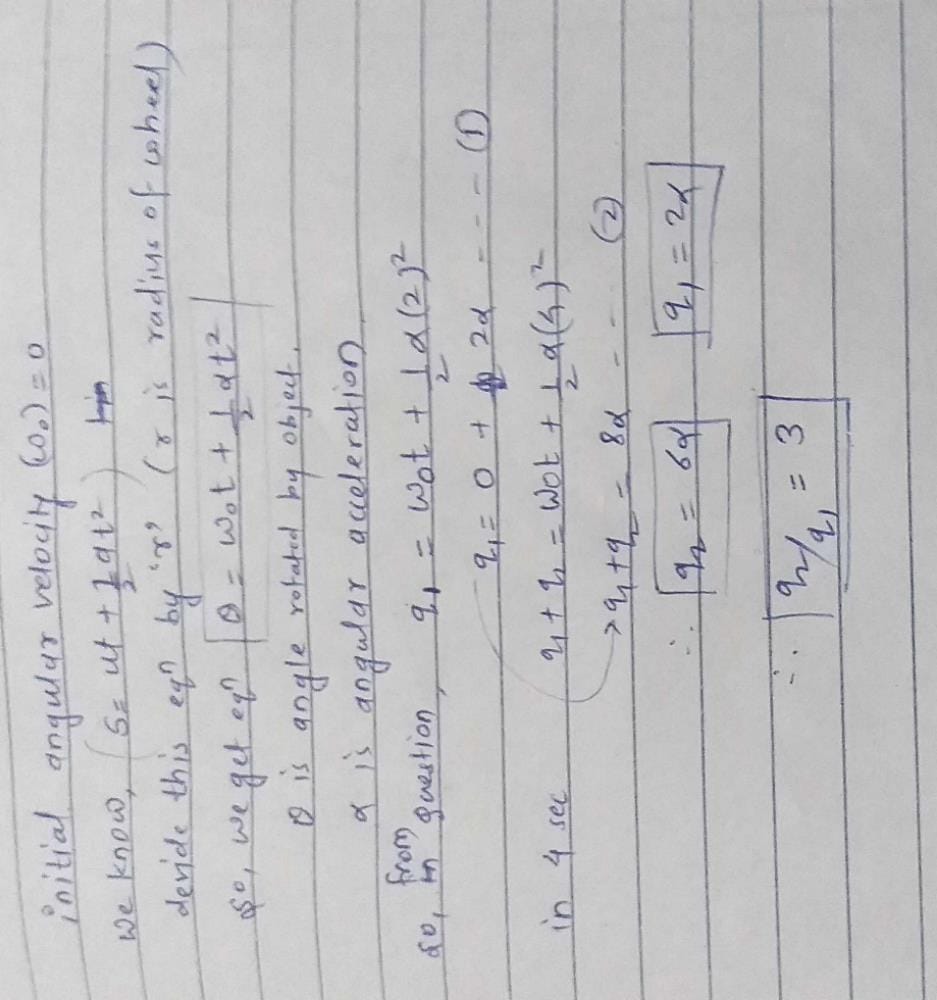 initial angular velocity (ω₀) = 0
we know, (s = ut + ½at²)
devide this eqⁿ by 'r' (r is radius of wheel)
so, we get eqⁿ θ = ω₀t + ½αt²
θ is angle rotated by object.
α is angular acceleration
so, from question, q₁ = ω₀t + ½α(2)²
q₁ = 0 + 2α - - - (1)
in 4 sec q₁ + q₂ = ω₀t + ½α(4)²
q₁ + q₂ = 8α - - . . . (2)
∴ q₂ = 6α q₁ = 2α
∴ q₂/q₁ = 3